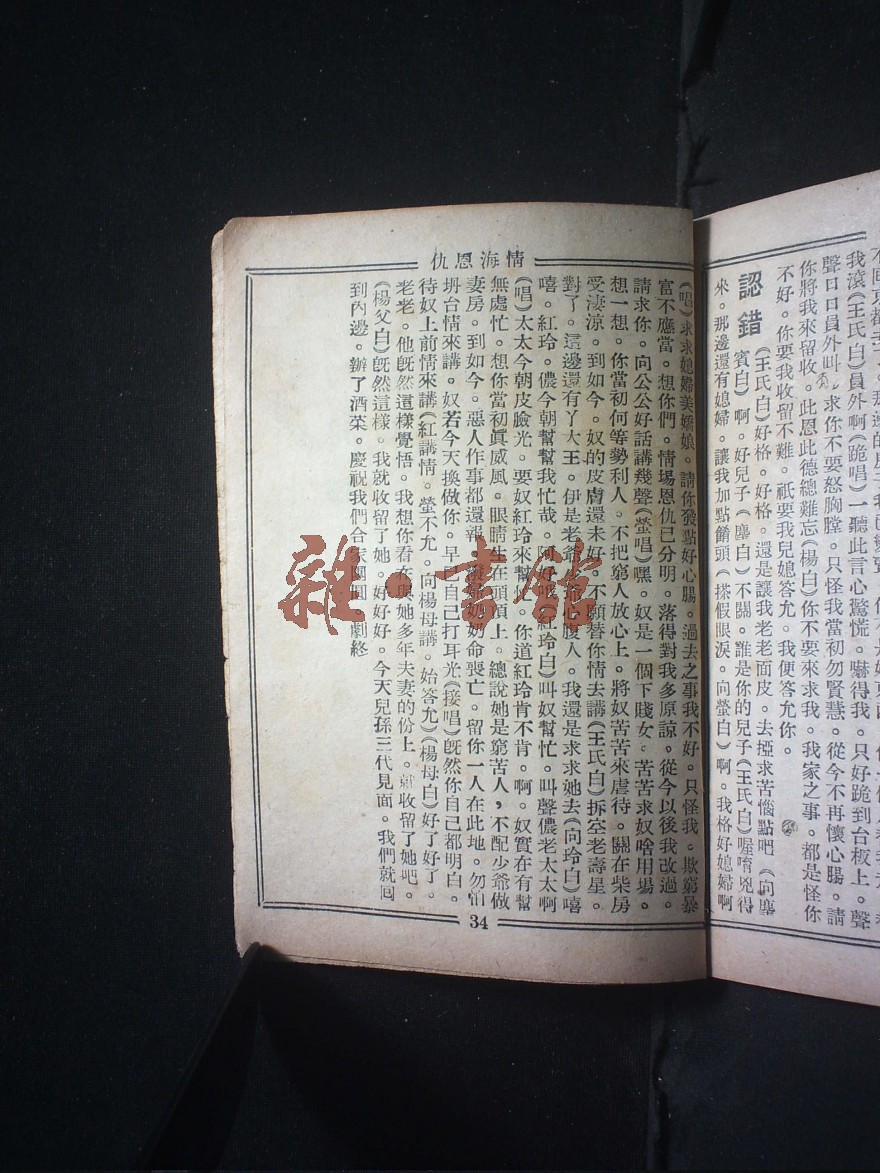 我滾(王氏白)員外啊(跪唱)一聽此言心驚慌。嚇得我。只好跪到台板上。聲
聲口口員外叫。求你不要怒胸膛。只怪我當初勿賢慧。從今不再懷心腸。請
你將我來留收。此恩此德總難忘(楊白)你不要來求我。我家之事。都是怪你
不好。你要我收留不難。祇要我兒媳答允。我便答允你。
認錯
(王氏白)好格。好格。還是讓我老老面皮。去挜求苦惱點吧(向塵
賓白)啊。好兒子(塵白)不關。誰是你的兒子(王氏白)喔唷兇得
來。那邊還有媳婦。讓我加點饞頭(搽假眼淚。向螢白)啊。我格好媳婦啊
情海恩仇
(唱)求求媳婦美嬌娘。請你發點好心腸。過去之事我不好。只怪我。欺窮暴
富不應當。想你們。情場恩仇已分明。落得對我多原諒。從今以後我改過。
請求你。向公公好話講幾聲(螢唱)嘿。奴是一個下賤女。苦苦求奴啥用場。
想一想。你當初何等勢利人。不把窮人放心上。將奴苦苦來虐待。關在柴房
受凄涼。到如今。奴的皮膚還未好。不願替你情去講(王氏白)拆空老壽星。
對了。這邊還有丫大王。伊是老爺 心腹人。我還是求求她去(向玲白)嘻
嘻。紅玲。儂今朝幫幫我忙哉。阿好 (紅玲白)叫奴幫忙。叫聲儂老太太啊
(唱)太太今朝皮臉光。要奴紅玲來幫忙。你道紅玲肯不肯。啊。奴實在有幫
無處忙。想你當初眞威風。眼睛生在頭 上。總說她是窮苦人，不配少爺做
妻房。到如今。惡人作事都還報。 奶奶命喪亡。留你一人在此地。勿怕
坍台情來講。奴若今天換做你。早 自己打耳光(接唱)旣然你自己都明白。
待奴上前情來講(紅講情。螢不允。向楊母講。始答允)(楊母白)好了好了。
老老。他旣然這樣覺悟。我想你看在與她多年夫妻的份上。就收留了她吧。
(楊父白)旣然這樣。我就收留了她。好好好。今天兒孫三代見面。我們就囘
到內邊。辦了酒菜。慶祝我們合家團圓。劇終
34
雜·書館